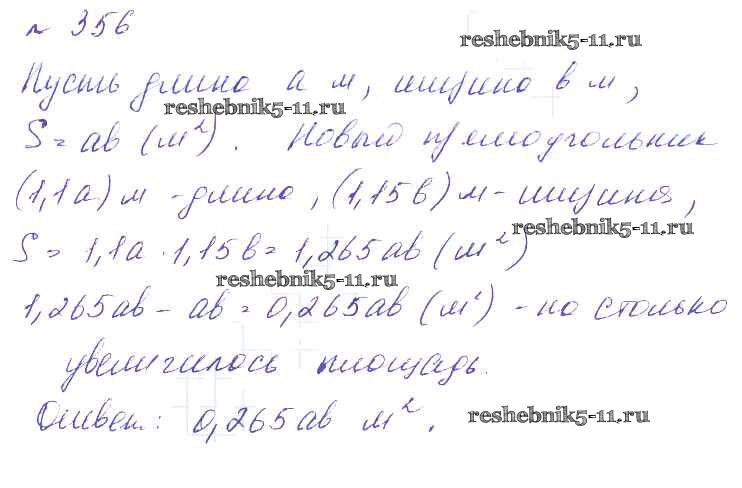 № 356
reshebnik5-11.ru
Пусть длина a м, ширина b м,
reshebnik5-11.ru
S = ab (м²). Новый прямоугольник
(1,1a) м - длина, (1,15b) м - ширина,
reshebnik5-11.ru
S = 1,1a · 1,15b = 1,265ab (м²)
reshebnik5-11.ru
1,265ab - ab = 0,265ab (м²) - на столько
увеличилось площадь.
Ответ: 0,265ab м².
reshebnik5-11.ru